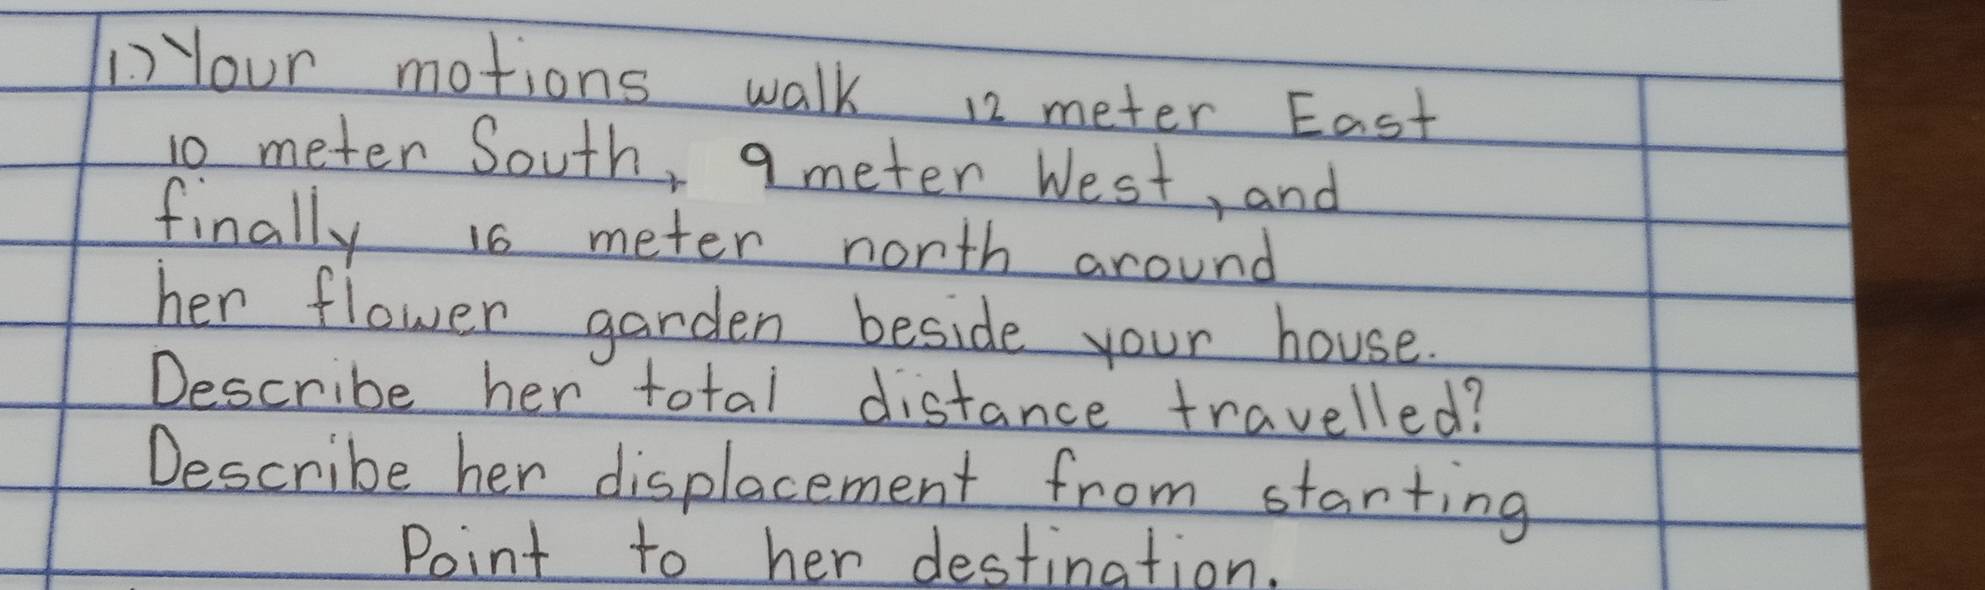 1.) Your motions walk 12 meter East
10 meter South, 9 meter West, and
finally 16 meter north around
her flower garden beside your house.
Describe her total distance travelled?
Describe her displacement from starting
Point to her destination.